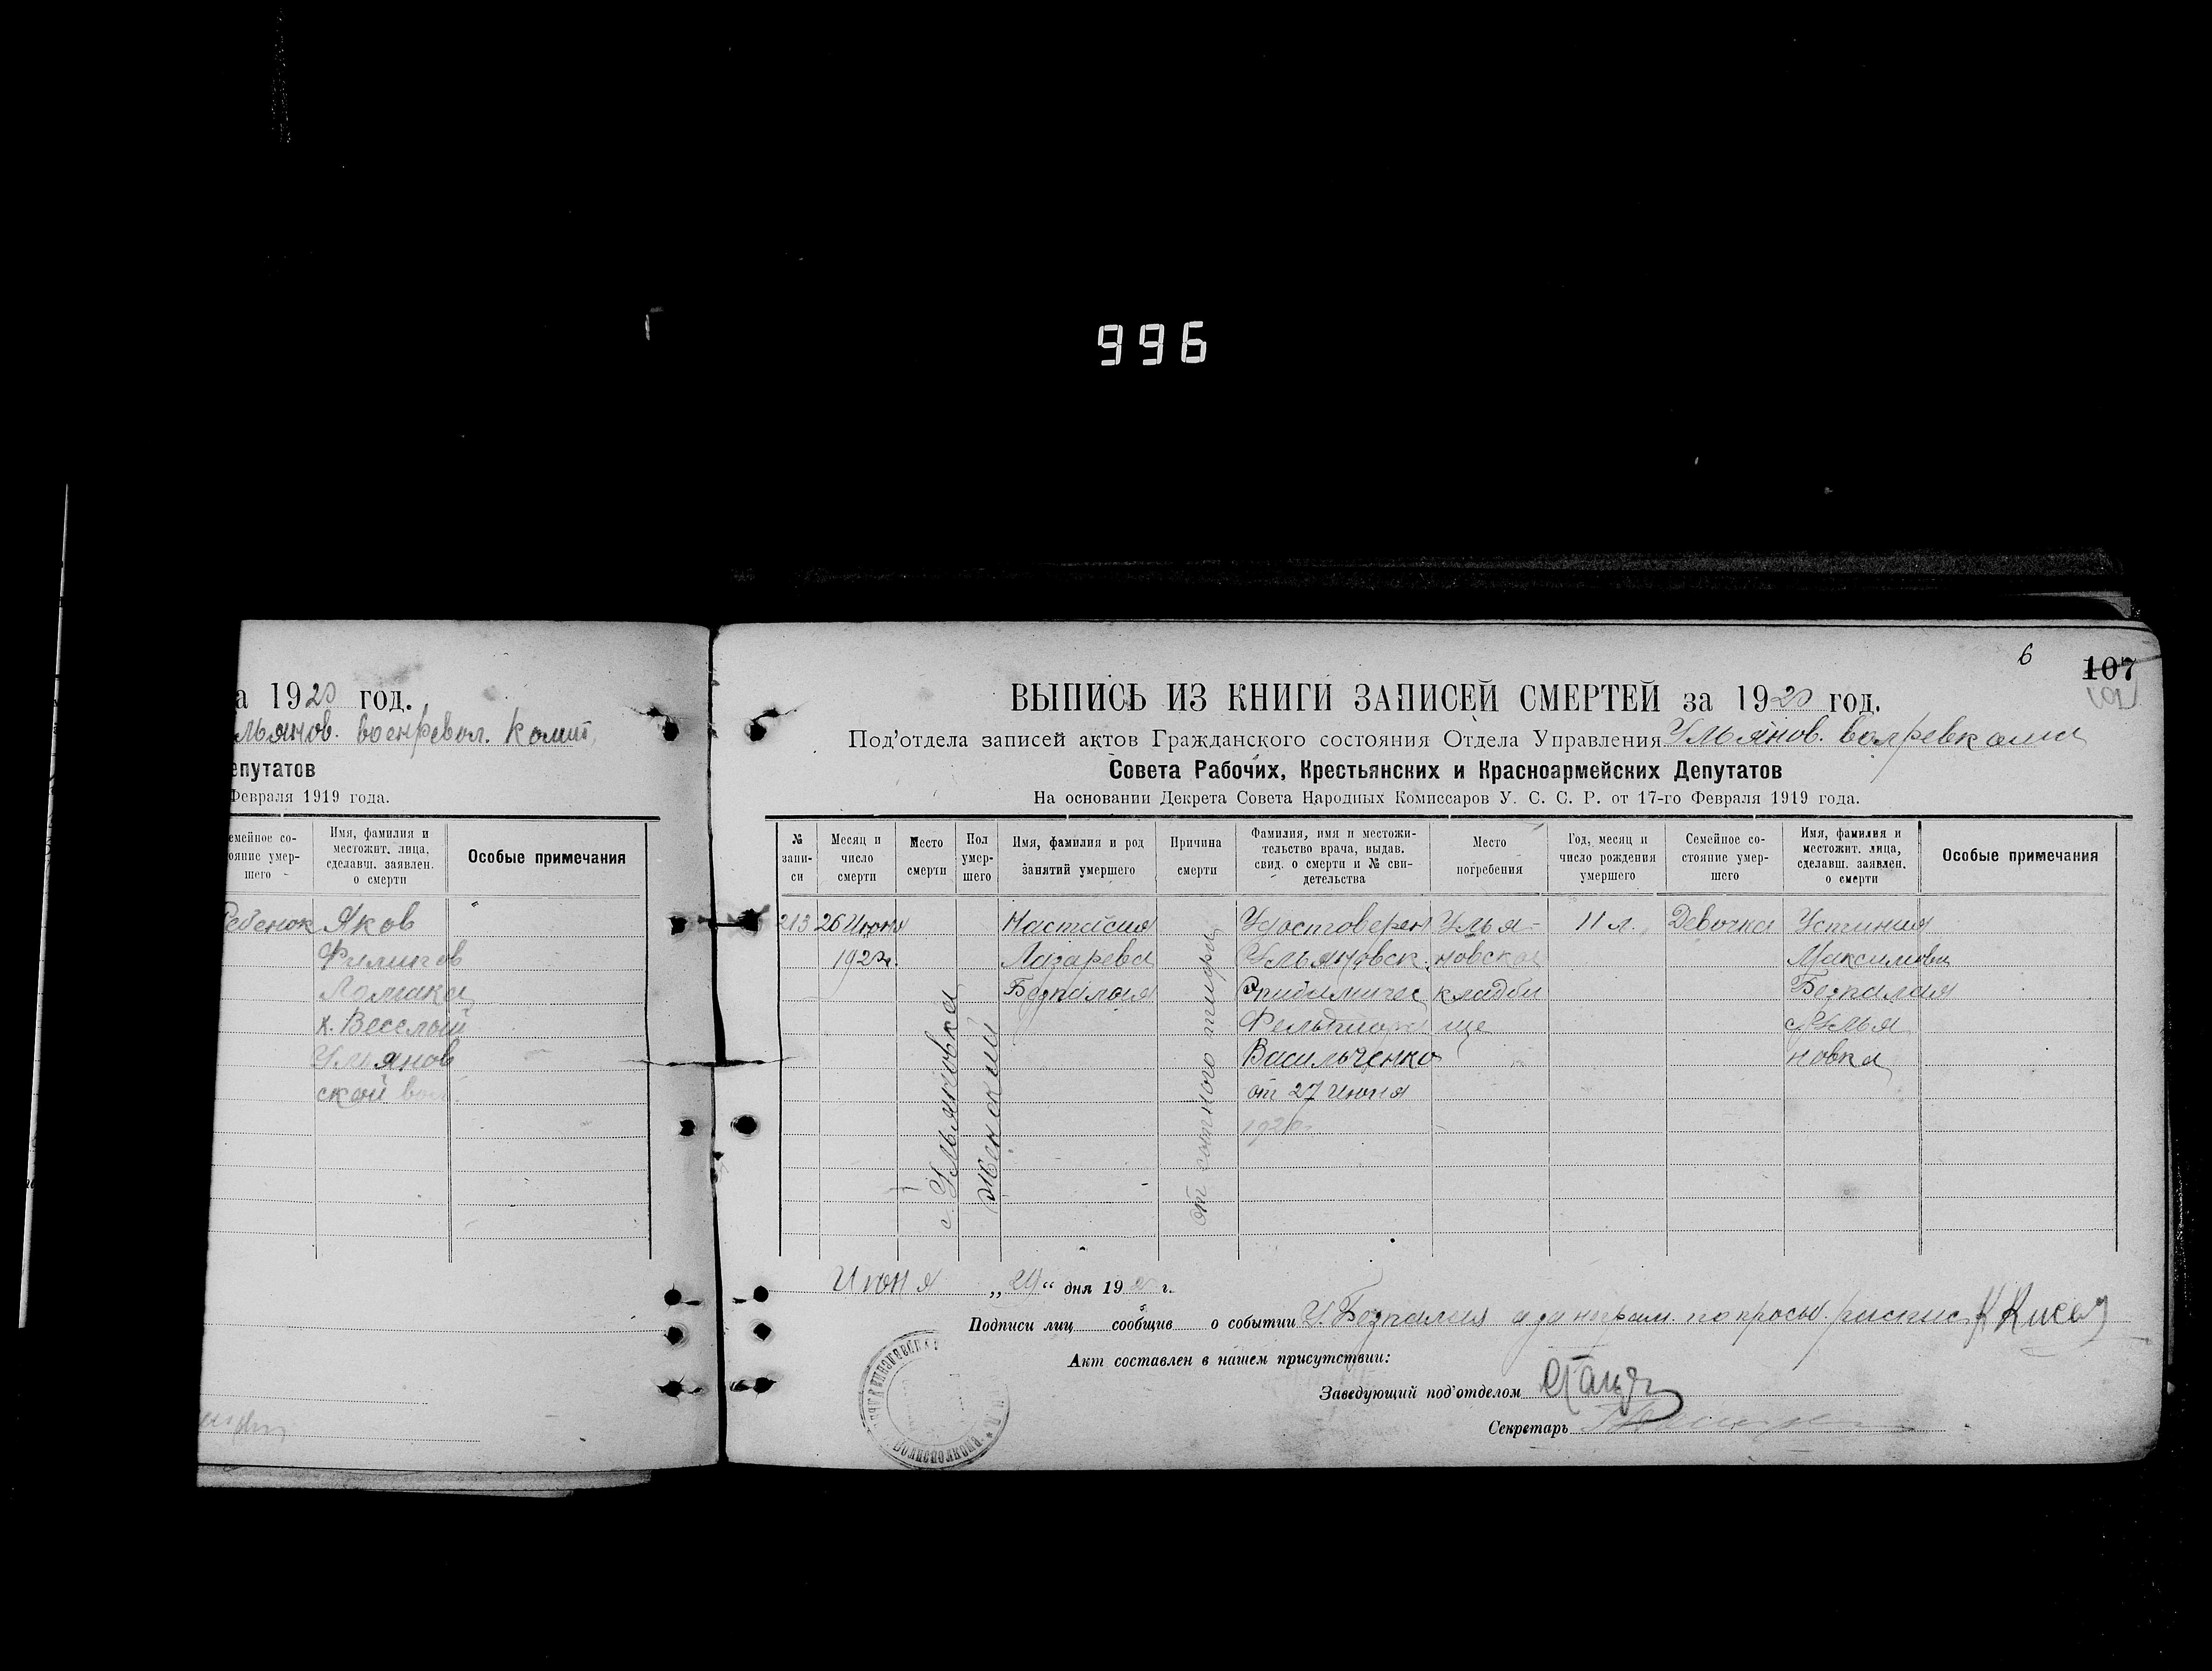 996
а 1920 год.
льянов. военревол. комит.
епутатов
Февраля 1919 года.
емейное со-
ояние умер-
шего
Имя, фамилия и
местожит. лица,
сделавш. заявлен.
о смерти
Особые примечания
Ребенок Яков
Филипов
х. Веселый
Ульянов
ской вол.
6
107
ВЫПИСЬ ИЗ КНИГИ ЗАПИСЕЙ СМЕРТЕЙ за 1920 год.
Под'отдела записей актов Гражданского состояния Отдела Управления Ульянов. волревкома
Совета Рабочих, Крестьянских и Красноармейских Депутатов
На основании Декрета Совета Народных Комиссаров У. С. С. Р. от 17-го Февраля 1919 года.
№
запи-
си
Месяц и
число
смерти
Место
смерти
Пол
умер-
шего
Имя, фамилия и род
занятий умершего
Причина
смерти
Фамилия, имя и местожи-
тельство врача, выдав.
свид. о смерти и № сви-
детельства
Место
погребения
Год, месяц и
число рождения
умершего
Семейное со-
стояние умер-
шего
Имя, фамилия и
местожит. лица,
сделавш. заявлен.
о смерти
Особые примечания
213
26 Июня
1920г.
с. Ульяновка
женский
Настасия
Лазарева
Безпалая
от сыпного тифа
Удостоверен
Ульяновск.
Эпидимичес
Фельдшера
Васильченко
от 27 июня
1920г.
Улья-
новское
кладби
ще
11 л.
Девочка
Устиния
Максимовна
Безпалая
с. Улья
новка
Июня „29“ дня 1920 г.
Подписи лиц сообщив о событии У. Безпалая а за неграм. по просьб. распис.
Акт составлен в нашем присутствии:
Заведующий под'отделом
Секретарь